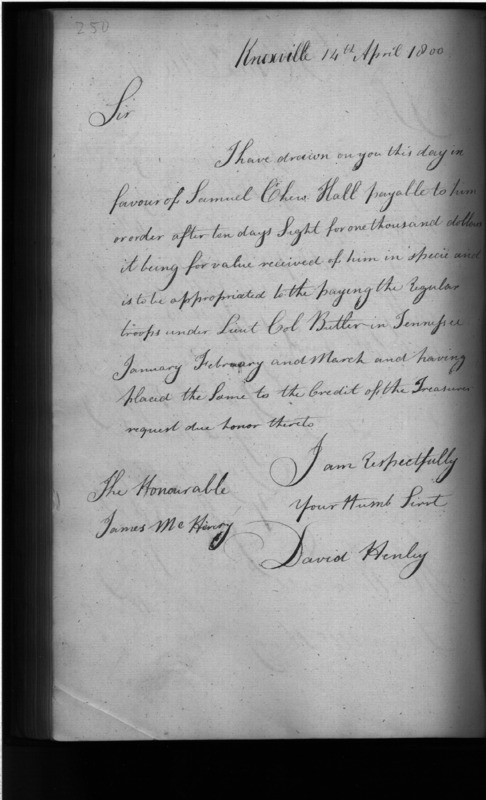 250
Knoxville 14th April 1800
Sir
I have drawn on you this day in
favour of Samuel Chew Hall payable to him
or order after ten days Sight for one thousand dollars
it being for value received of him in specie and
is to be appropriated to the paying the Regular
troops under Lieut Col Butler in Tennessee
January February and March and having
placed the Same to the Credit of the Treasurer
request due honor thereto
I am Respectfully
Your Humb Servt
David Henley
The Honourable
James McHenry